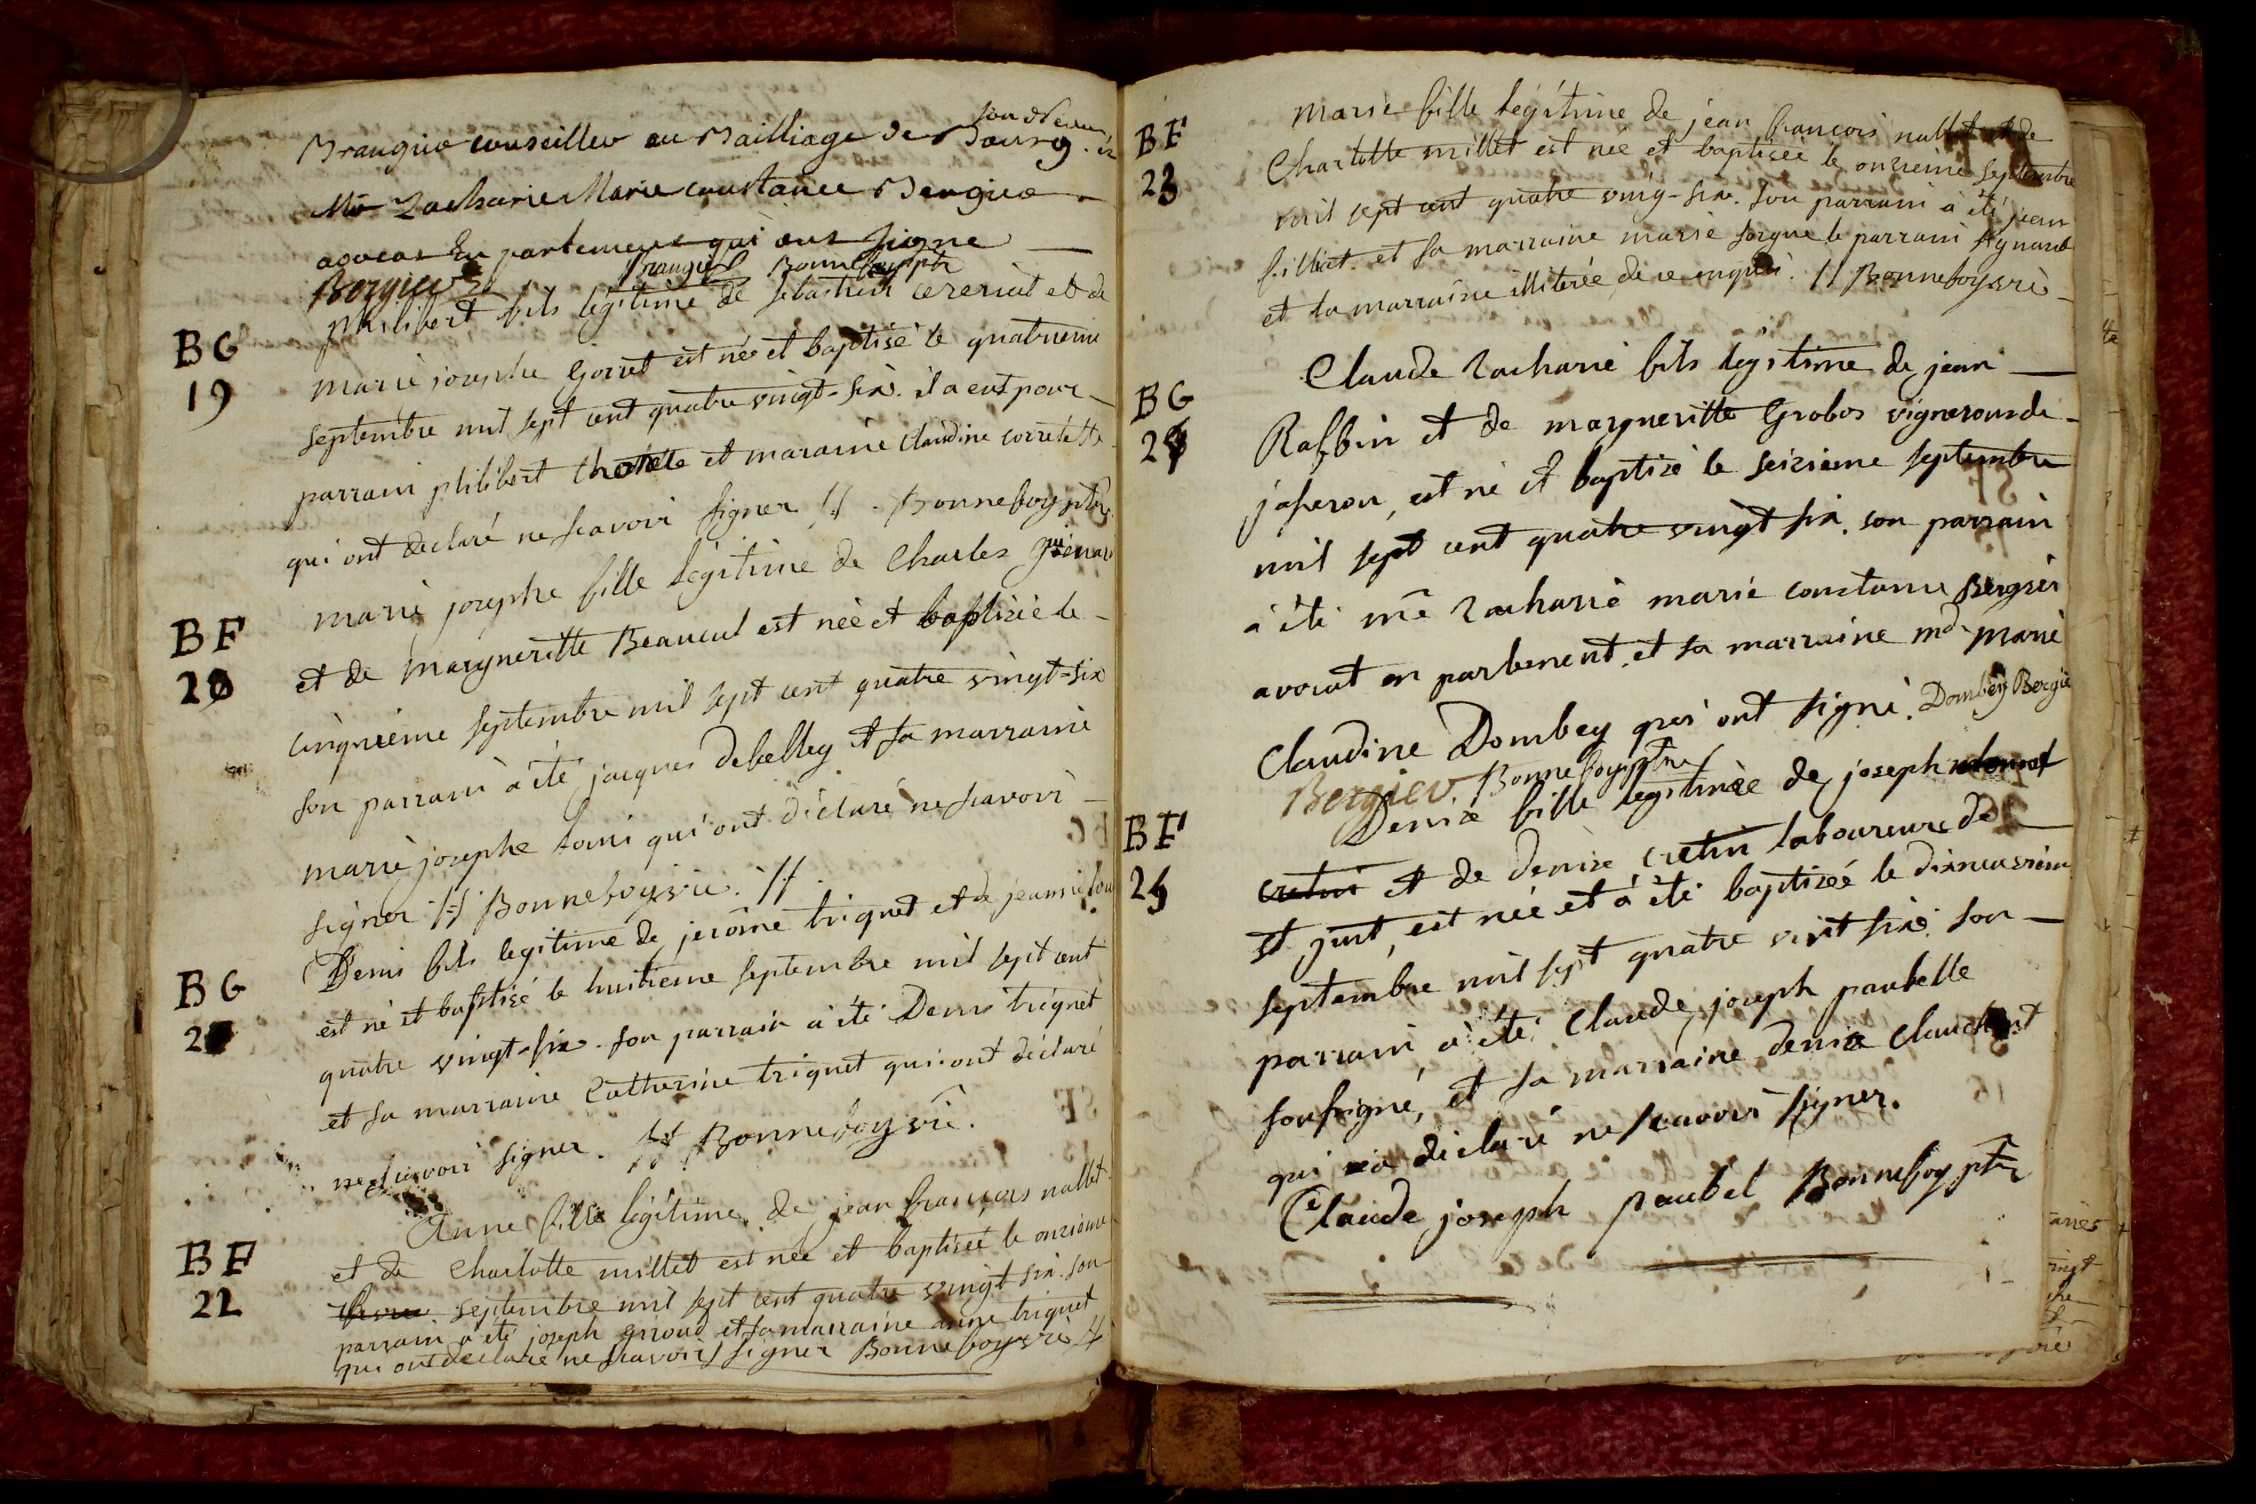 Brangier conseiller au Bailliage de Bourg. et
Mr Zacharie Marie constance Bergier
avocat En parlement qui ont signé
Bergier Brangier Bonnefoy ptre
BG
19
philibert fils légitime de sebastien cereriat et de
marie josephe Gorret est née et baptisé le quatrieme
septembre mil sept cent quatre vingt-six. il a eut pour
parrain philibert et maraine Claudine corretette
qui ont declaré ne scavoir signer // Bonnefoy ptre
BF
20
marie josephe fille légitime de Charles
et de margueritte Beaucul est née et baptisée le
cinquième septembre mil sept cent quatre vingt-six
son parrain a été jacques debelley et sa marraine
marie josephe qui ont déclaré ne scavoir
signer // Bonnefoy vic. //
BG
2
Denis fils legitime de jerôme triquet et de jeanne
est né et baptisé le huitieme septembre mil sept cent
quatre vingt-six. son parrain a été Denis triquet
et sa marraine Catherine triquet qui ont déclaré
ne scavoir signer. // Bonnefoy vic.
BF
22
Anne fille légitime de jean francois nallet
et de Charlotte millet est née et baptisée le onzieme
septembre mil sept cent quatre vingt six. son
parrain a été joseph giroud et sa marraine anne triquet
qui ont declaré ne scavoir signer Bonnefoy vic //
BF
23
marie fille légitime de jean francois nallet et de
Charlotte millet est née et baptisée le onzieme septembre
mil sept cent quatre ving-six. son parrain a été jean
filliat et sa marraine marie sorgue le parrain signant
et la marraine illiterée de ce enquis. // Bonnefoy vic
BG
2
Claude Zacharie fils légitime de jean
Raffin et de margueritte Grobos vignerons de
jasseron, est né et baptisé le seizieme septembre
mil sept cent quatre vingt six. son parrain
a été me Zacharie marie constance Bergier
avocat en parlement, et sa marraine md. marie
Claudine Dombey qui ont signé. Dombey Bergie
Bergier. Bonnefoy ptre
BF
25
Denise fille legitimée de joseph
cretin et de denise cretin laboureurs de
st just, est née et a été baptisée le dixneuvieme
septembre mil sept quatre vint six. son
parrain a été Claude joseph paubelle
soussigné, et sa marraine denise
qui a déclaré ne scavoir signer.
Claude joseph paubel Bonnefoy ptre